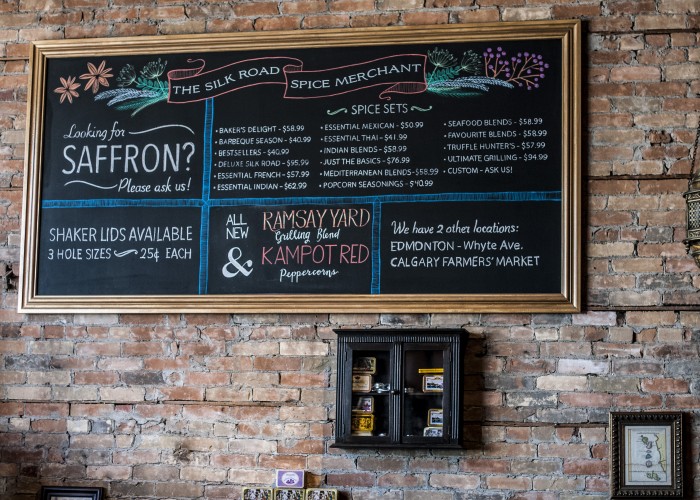 THE SILK ROAD SPICE MERCHANT
Looking for
SAFFRON?
Please ask us!
SPICE SETS
• BAKER'S DELIGHT - $58.99
• BARBEQUE SEASON - $40.99
• BESTSELLERS - $40.99
• DELUXE SILK ROAD - $95.99
• ESSENTIAL FRENCH - $57.99
• ESSENTIAL INDIAN - $62.99
• ESSENTIAL MEXICAN - $50.99
• ESSENTIAL THAI - $41.99
• INDIAN BLENDS - $58.99
• JUST THE BASICS - $76.99
• MEDITERRANEAN BLENDS - $58.99
• POPCORN SEASONINGS - $40.99
• SEAFOOD BLENDS - $58.99
• FAVOURITE BLENDS - $58.99
• TRUFFLE HUNTER'S - $57.99
• ULTIMATE GRILLING - $94.99
• CUSTOM - ASK US!
SHAKER LIDS AVAILABLE
3 HOLE SIZES 25¢ EACH
ALL NEW
RAMSAY YARD
Grilling Blend
& KAMPOT RED
Peppercorns
We have 2 other locations:
EDMONTON - Whyte Ave.
CALGARY FARMERS' MARKET